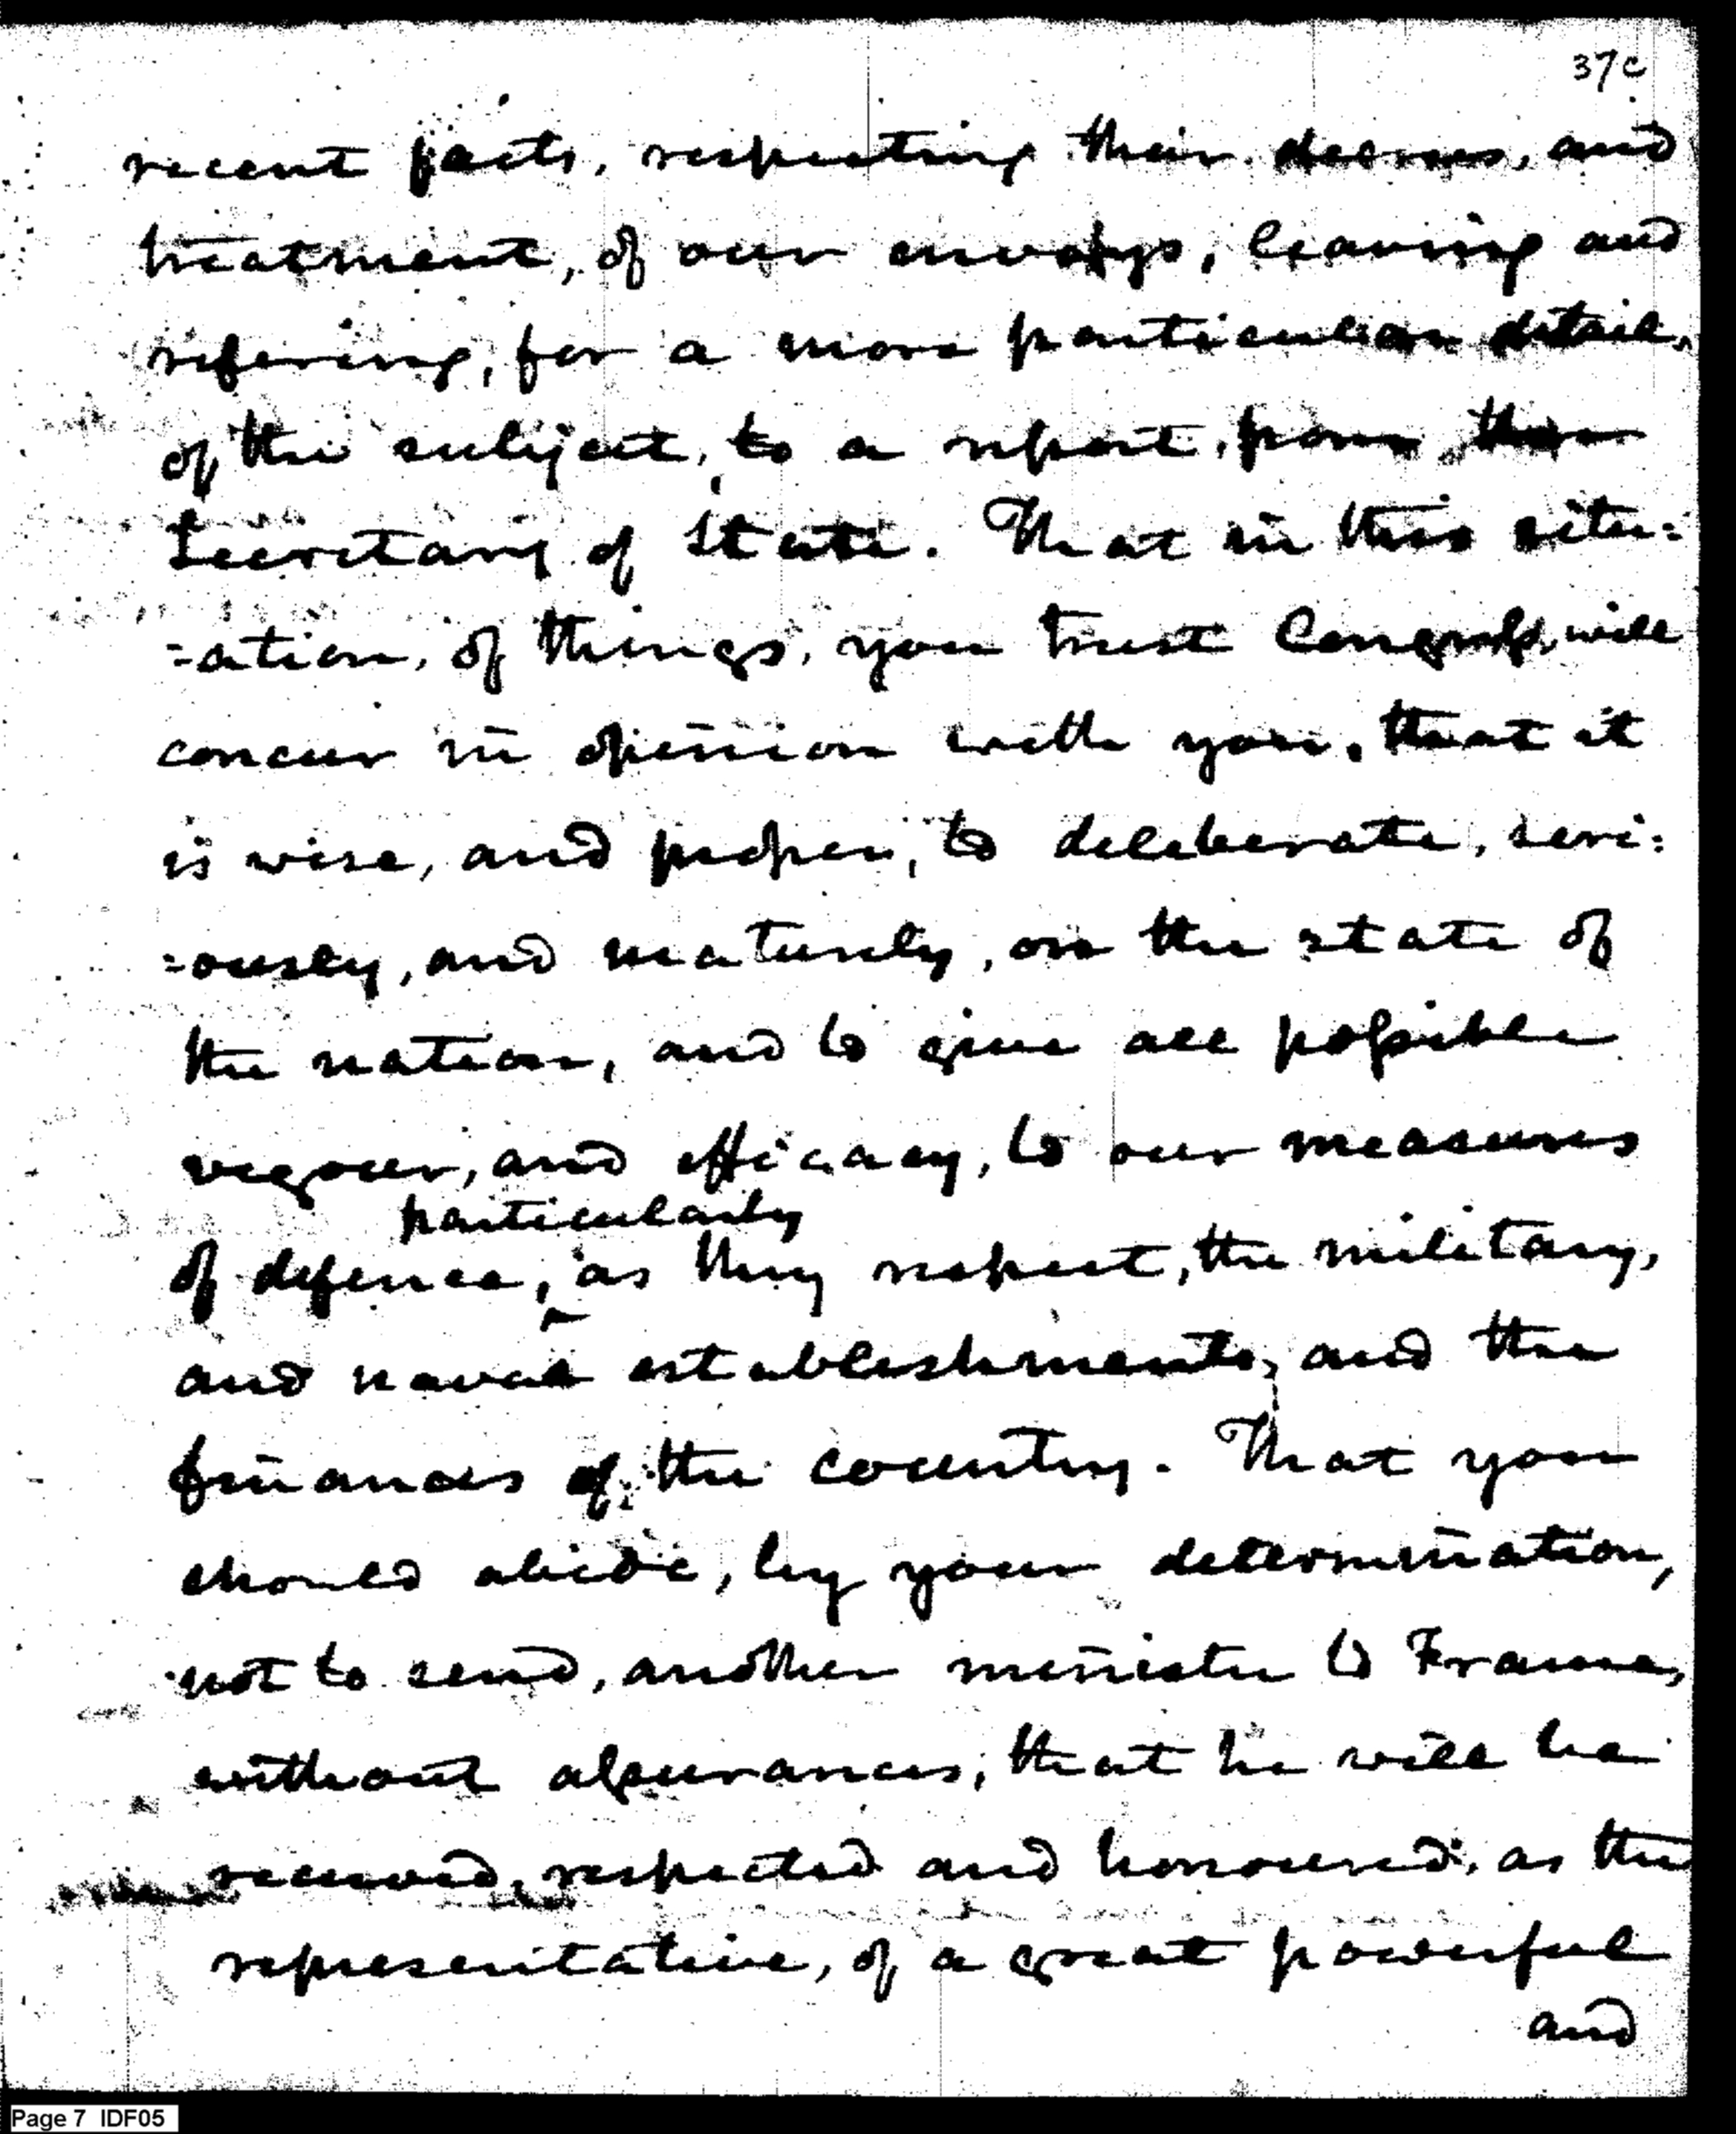 37c
recent facts, respecting their decrees, and
treatment, of our envoys, leaving and
refering, for a more particular detail,
of the subject, to a report, from the
Secretary of State. That in this situ=
=ation, of things, you trust Congreſs, will
concur in opinion with you, that it
is wise, and proper, to deliberate, seri=
=ously, and maturely, on the state of
the nation, and to give all poſsible
vigour, and efficacy, to our measures
particularly
of defence, as they respect, the military,
and naval establishments, and the
finances of the country. That you
should abide, by your determination,
not to send, another minister to France,
without aſsurances, that he will be
received, respected and honoured, as the
representative, of a great powerful
and
Page 7 IDF05